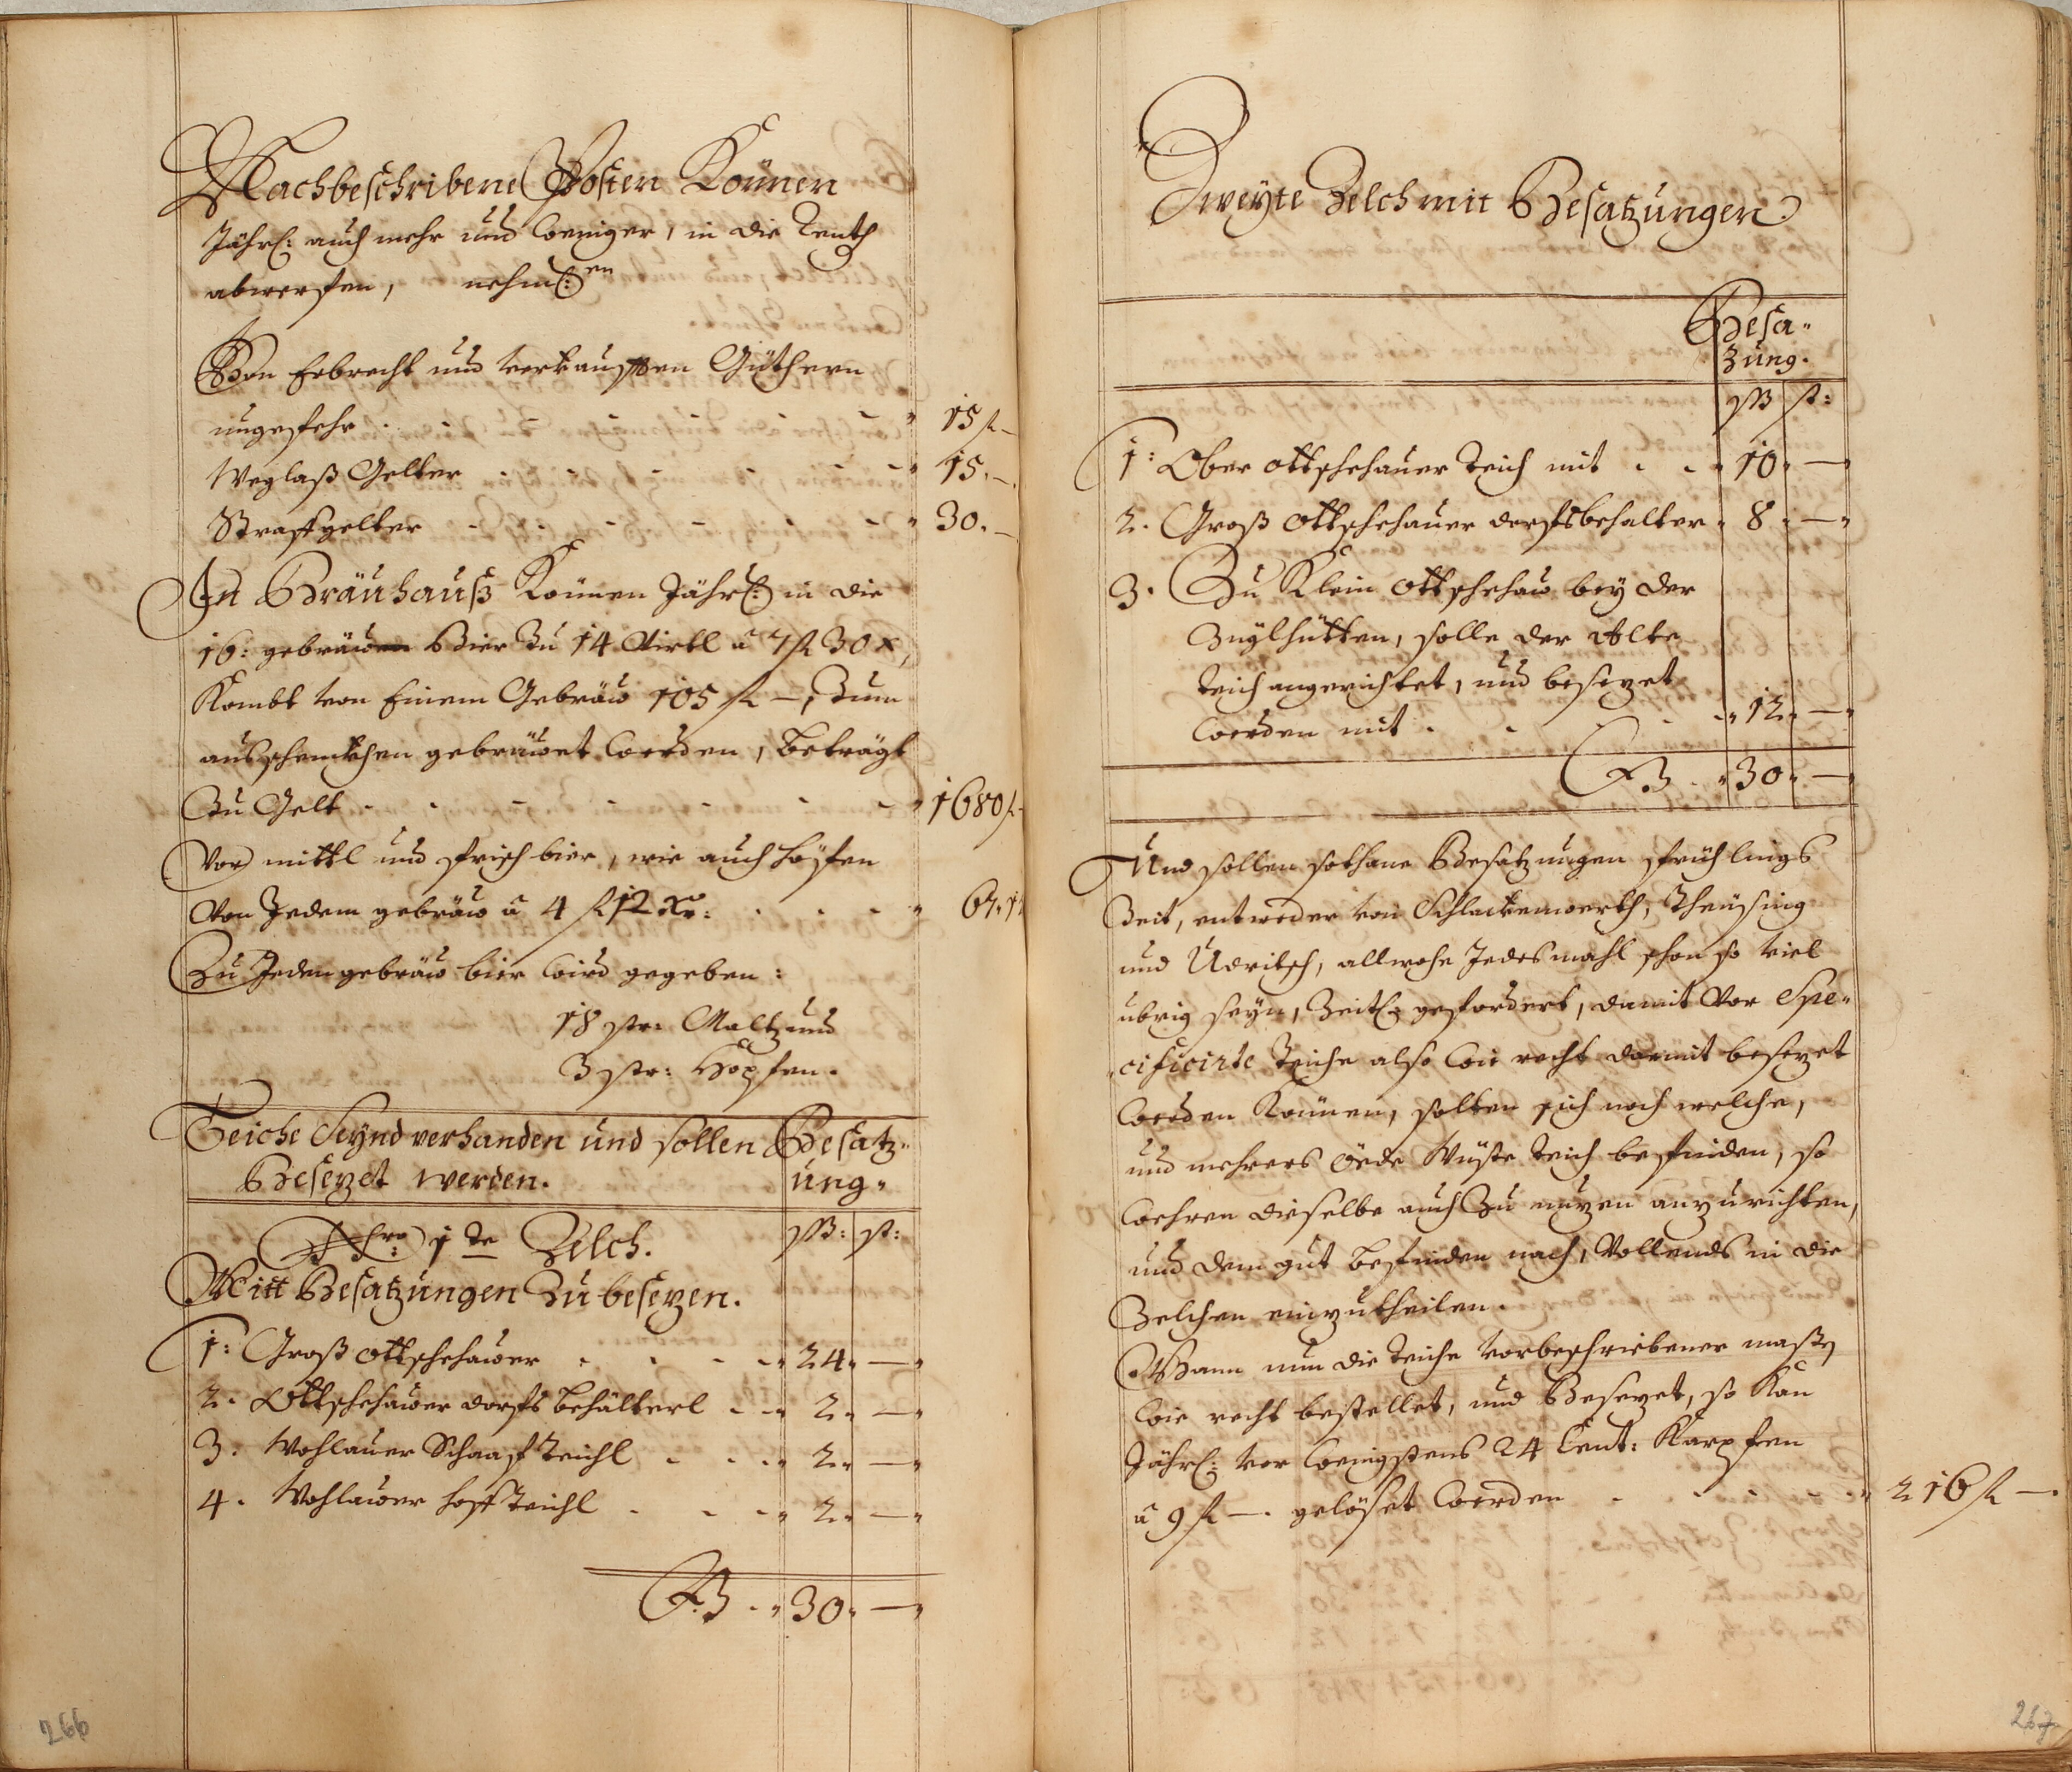 Nachbeschribene Posten Können
Jährl: auch mehr und weniger, in die Renth
abwerffen, nehml:en
Von Erbrecht und verkaufften Güthern
ungefehr - - - 15 fl -
Weglaß Gelter - - - 15. -
Straffgelter - - - 30. -
In Bräuhauß Können Jährl: in die
16: gebräuen Bier Zu 14 Virtl à 7 fl 30 x,
Kombt von Einem Gebräw 105 fl -, Zum
ausschenkhen gebräuet werden, beträgt
Zu Gelt - - - 1680 fl -
Vor mittl und frisch bier, wie auch höpfen
Von Jedem gebräw à 4 fl 12 Xr: - - - 67. 1
Zu Jeden gebräw bier wird gegeben:
18 str: Maltz und
3 str: Höpfen.
Teiche Seynd verhanden und sollen Besatz-
Besezet werden. ung.
1te Zelch. ßß: st:
Mitt Besatzungen Zu besezen.
1: Groß Ottschehauer - - - 24. -
2. Ottschehauer dorfs behälterl - - 2. -
3: Wohlauer Schaaf Teichl - - - 2. -
4. Wohlauer hoff Teichl - - - 2. -
30. -
266
Zweyte Zelch mit Besatzungen
Besa-
zung.
ßß st:
1: Ober Ottschehauer Teich mit - - 10. -
2. Groß Ottschehauer dorfsbehalter 8. -
3. Zu Klein Ottschehau bey der
Zieglhütten, solle der Alte
Teich angerichtet, und besezet
werden mit - - - 12. -
30. -
Und sollen sothane Besatzungen frühlings
Zeit, entweder von Schlackenwerth, Theusing
und Udritsch, allwohe Jedes mahl schon so viel
ubrig seyn, Zeitl: gefordert, damit Vor Spe-
cificirte Teiche also wie recht darmit besezet
werden Können, solten sich noch welche,
und mehrers öede Wüste Teich befinden, so
wehren dieselbe auch Zu nuzen anzurichten,
und dem gut befinden nach, Vollends in die
Zelchen einzutheilen.
Wann nun die Teiche Vorbeschriebener maßen
wie recht bestellet, und Besezet, so Kan
Jährl: vor wenigstens 24 Cent: Karpfen
à 9 fl -. gelöset werden - - - 216 fl -.
267